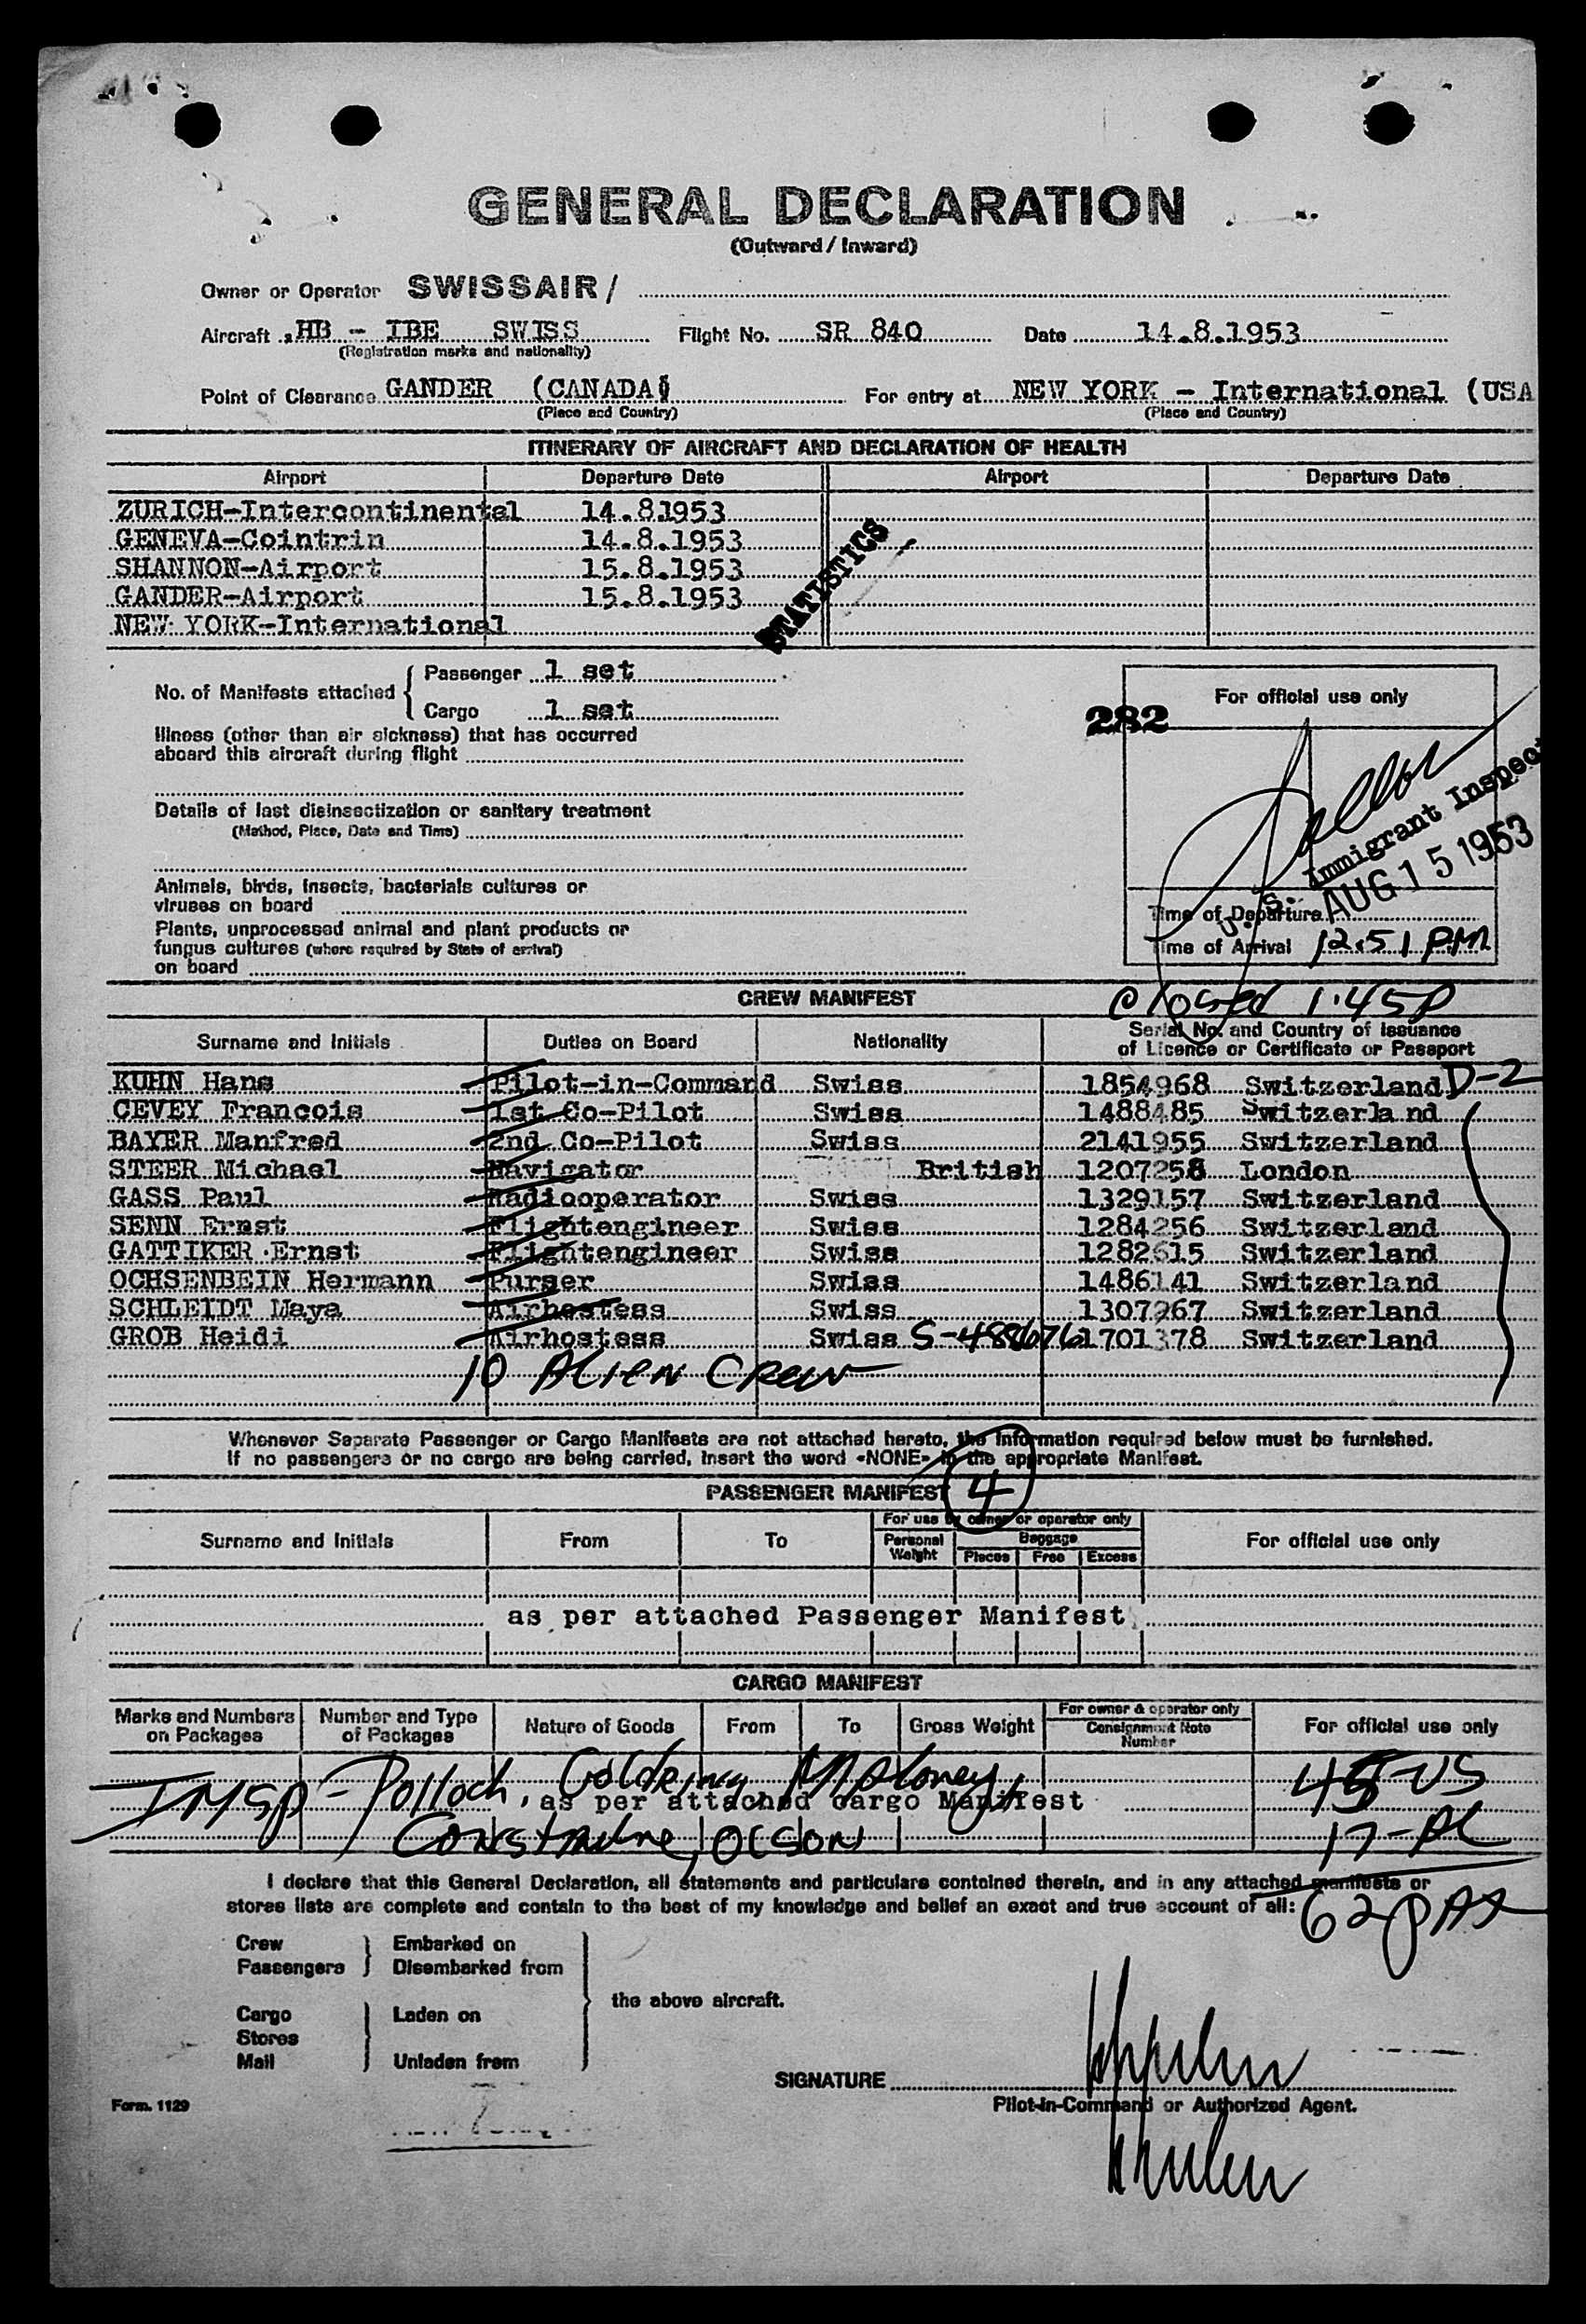 GENERAL DECLARATION
(Outward / Inward)
Owner or Operator SWISSAIR /
Aircraft HB - IBE SWISS Flight No. SR 840 Date 14.8.1953
(Registration marks and nationality)
Point of Clearance GANDER (CANADA) For entry at NEW YORK - International (USA
(Place and Country) (Place and Country)
ITINERARY OF AIRCRAFT AND DECLARATION OF HEALTH
Airport Departure Date Airport Departure Date
ZURICH-Intercontinental 14.8.1953
GENEVA-Cointrin 14.8.1953
SHANNON-Airport 15.8.1953
GANDER-Airport 15.8.1953
NEW YORK-International
STATISTICS
No. of Manifests attached { Passenger 1 set
Cargo 1 set
For official use only
282
Illness (other than air sickness) that has occurred
aboard this aircraft during flight
Details of last disinsectization or sanitary treatment
(Method, Place, Date and Time)
U. S. Immigrant Inspec
AUG 15 1953
Animals, birds, insects, bacterials cultures or
viruses on board
Plants, unprocessed animal and plant products or
fungus cultures (where required by State of arrival)
on board
Time of Departure
Time of Arrival 12.51 PM
CREW MANIFEST
closed 1:45P
Surname and Initials Duties on Board Nationality Serial No. and Country of Issuance
of Licence or Certificate or Passport
KUHN Hans Pilot-in-Command Swiss 1854968 Switzerland D-2
CEVEY Francois 1st Co-Pilot Swiss 1488485 Switzerla nd
BAYER Manfred 2nd Co-Pilot Swiss 2141955 Switzerland
STEER Michael Navigator British 1207258 London
GASS Paul Radiooperator Swiss 1329157 Switzerland
SENN Ernst Flightengineer Swiss 1284256 Switzerland
GATTIKER Ernst Flightengineer Swiss 1282615 Switzerland
OCHSENBEIN Hermann Purser Swiss 1486141 Switzerland
SCHLEIDT Maya Airhostess Swiss 1307267 Switzerland
GROB Heidi Airhostess Swiss 1701378 Switzerland
10 Alien Crew
Whenever Separate Passenger or Cargo Manifests are not attached hereto, the information required below must be furnished.
If no passengers or no cargo are being carried, insert the word «NONE» in the appropriate Manifest.
PASSENGER MANIFEST 4
Surname and Initials From To For use by owner or operator only For official use only
Personal Weight Baggage
Pieces Free Excess
as per attached Passenger Manifest
CARGO MANIFEST
Marks and Numbers on Packages Number and Type of Packages Nature of Goods From To Gross Weight For owner & operator only
Consignment Note Number For official use only
INSP - Polloch, Goldring, Maloney, 45 US
as per attached cargo Manifest
Constantine, Olson 17-AL
62 PAX
I declare that this General Declaration, all statements and particulars contained therein, and in any attached manifests or
stores lists are complete and contain to the best of my knowledge and belief an exact and true account of all:
Crew Embarked on
Passengers Disembarked from
the above aircraft.
Cargo Laden on
Stores
Mail Unladen from
SIGNATURE
Pilot-in-Command or Authorized Agent.
Form. 1129